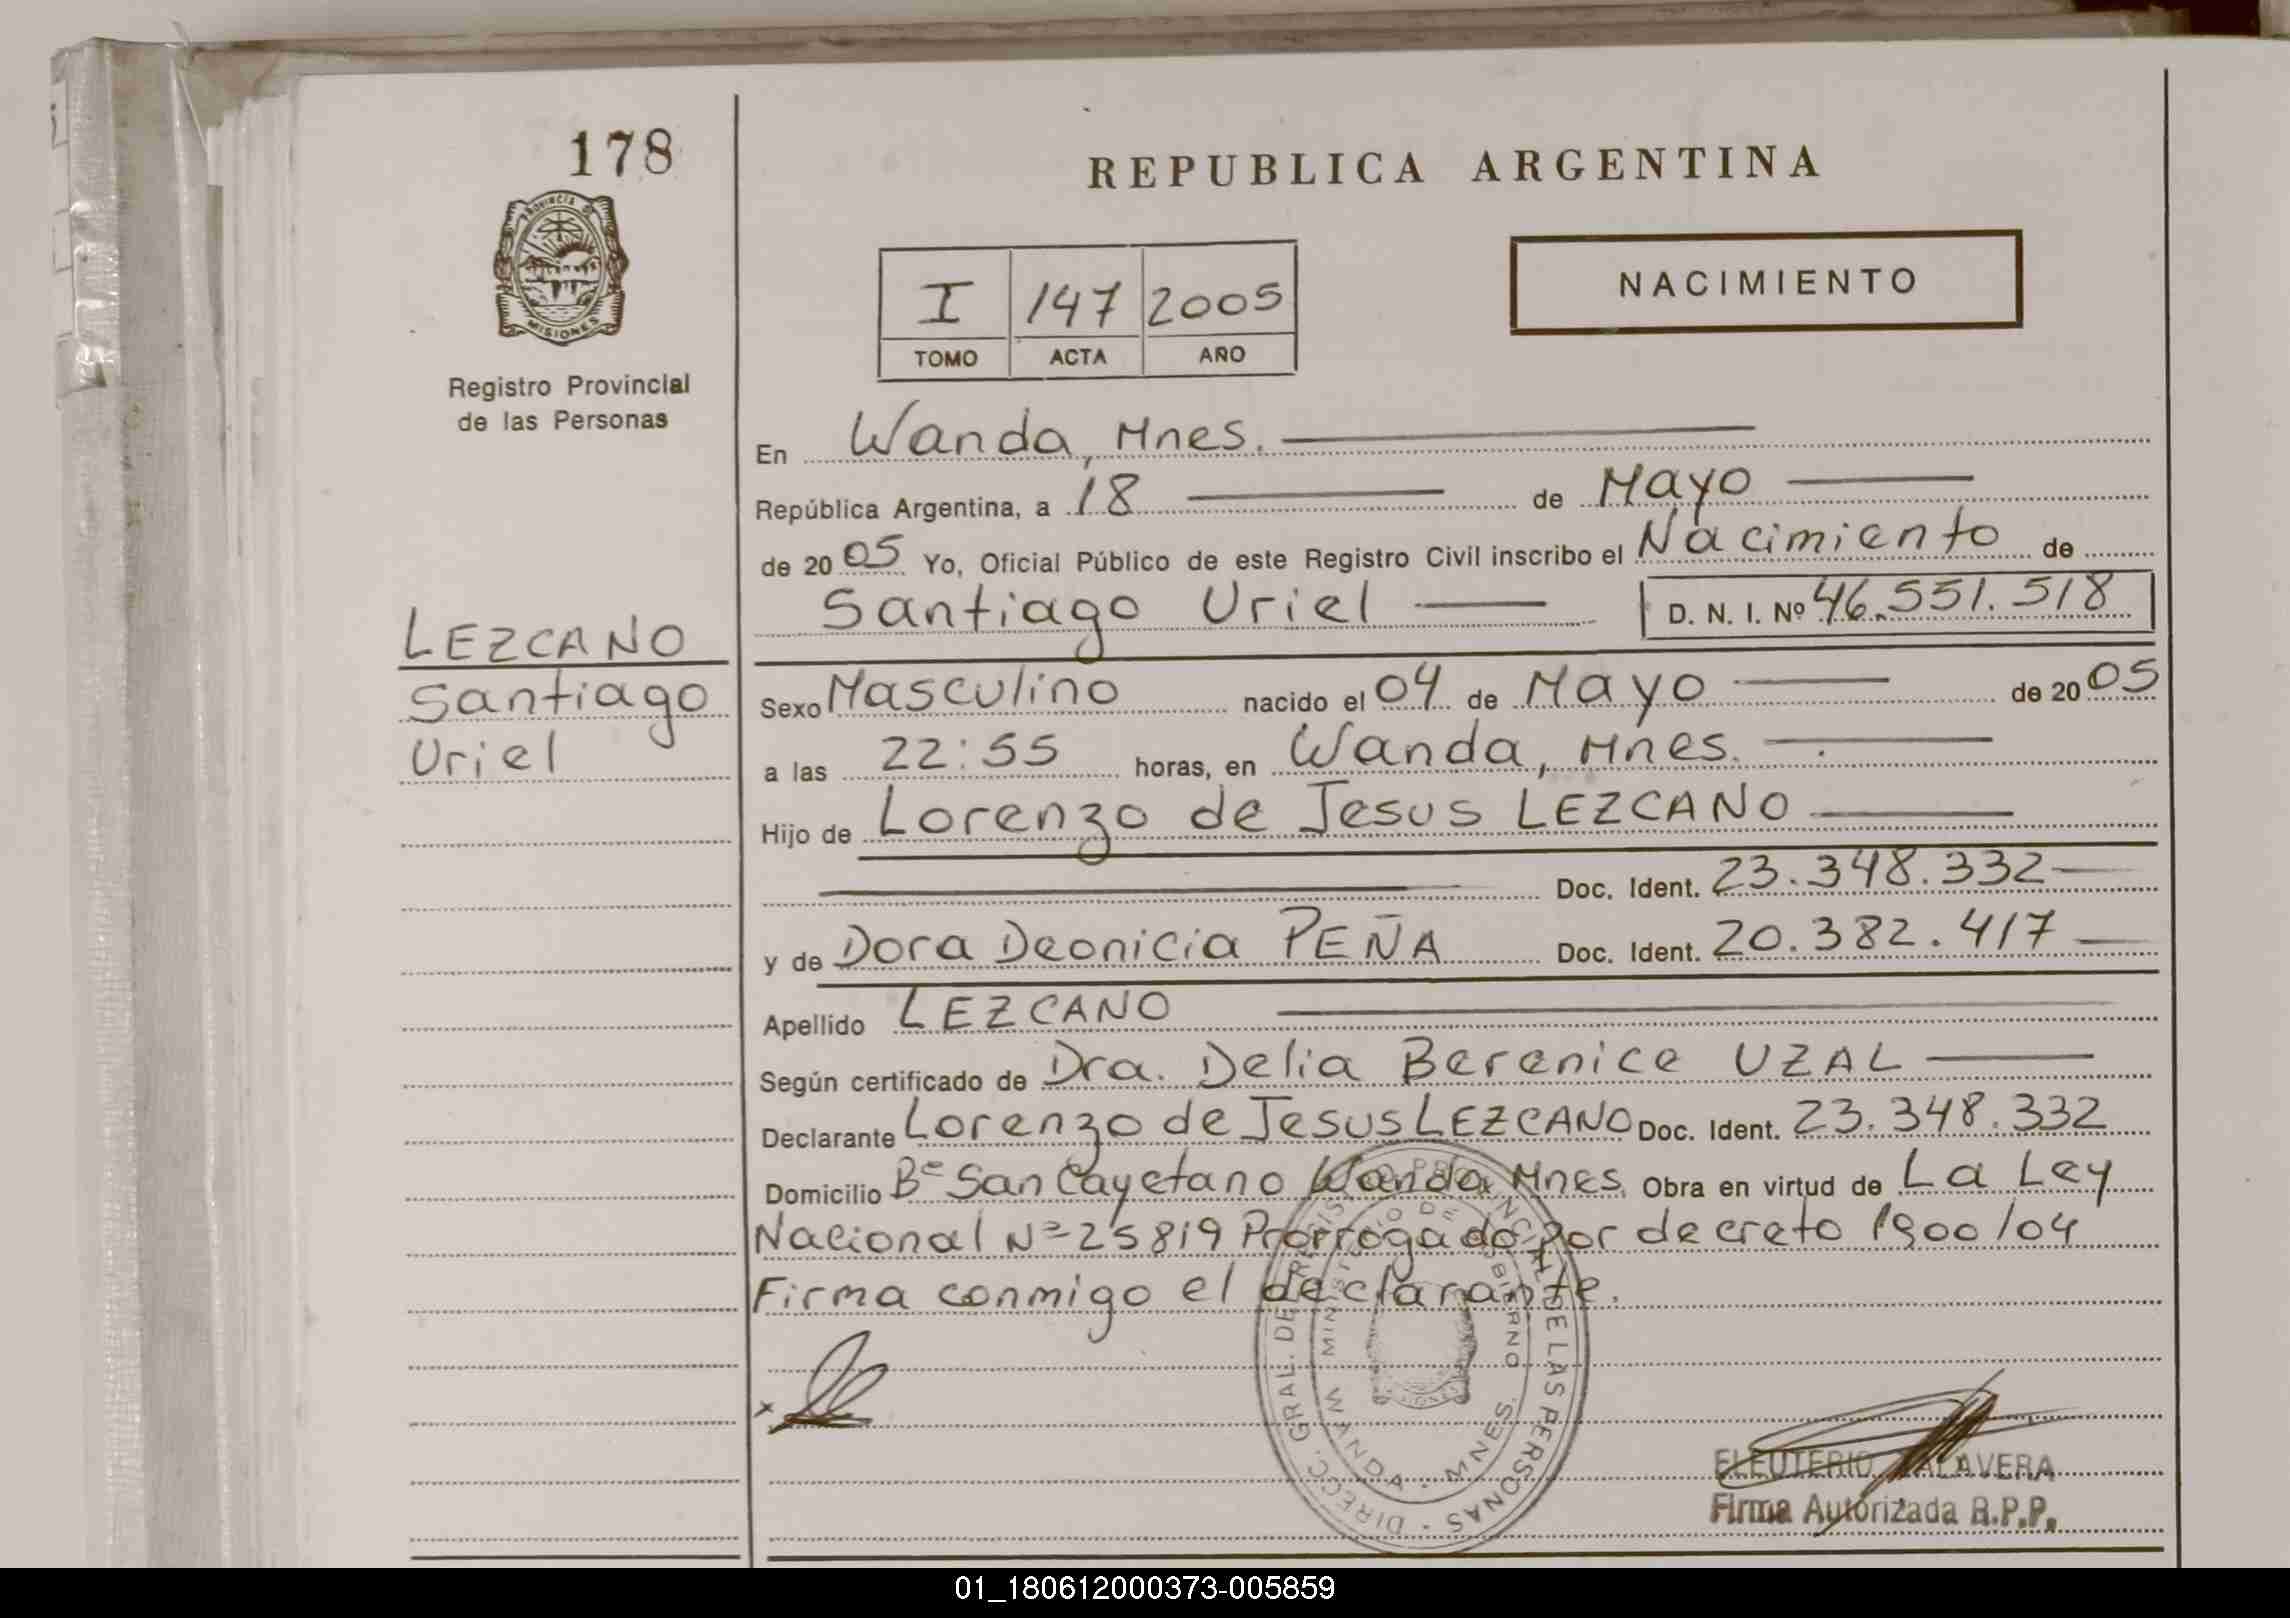 178
PROVINCIA DE
MISIONES
Registro Provincial
de las Personas
LEZCANO
Santiago
Uriel
REPUBLICA ARGENTINA
I 147 2005
TOMO ACTA AÑO
NACIMIENTO
En Wanda, Mnes.
República Argentina, a 18 de Mayo
de 2005 Yo, Oficial Público de este Registro Civil inscribo el Nacimiento de
Santiago Uriel D. N. I. Nº 46.551.518
Sexo Masculino nacido el 04 de Mayo de 2005
a las 22:55 horas, en Wanda, Mnes.
Hijo de Lorenzo de Jesus LEZCANO
Doc. Ident. 23.348.332
y de Dora Deonicia PEÑA Doc. Ident. 20.382.417
Apellido LEZCANO
Según certificado de Dra. Delia Berenice UZAL
Declarante Lorenzo de Jesus LEZCANO Doc. Ident. 23.348.332
Domicilio Bº San Cayetano Wanda Mnes. Obra en virtud de La Ley
Nacional Nº 25819 Prorrogado por decreto 1900/04
Firma conmigo el declarante.
x
DIRECC. GRAL. DE REGISTRO PROVINCIAL DE LAS PERSONAS
MINISTERIO DE GOBIERNO
WANDA - MNES.
ELEUTERIO TALAVERA
Firma Autorizada R.P.P.
01_180612000373-005859